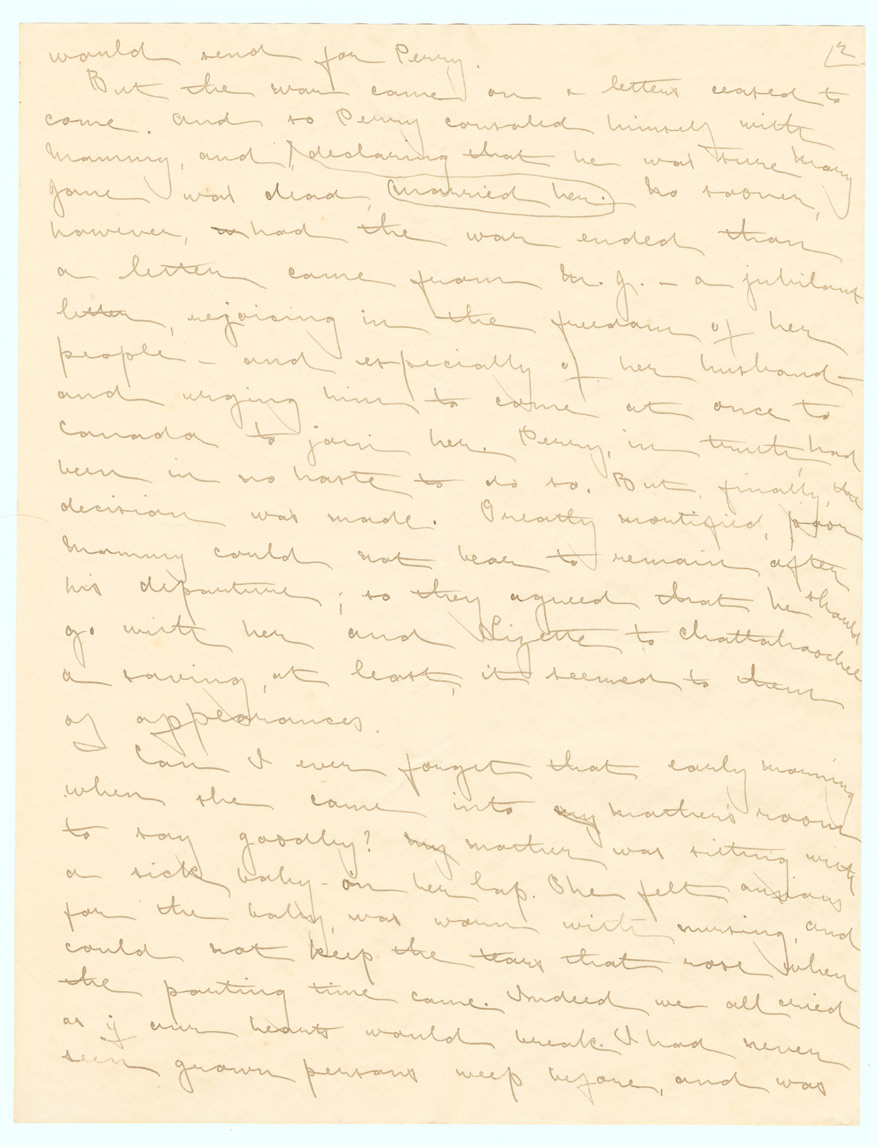 12
would send for Perry.
But the war came on & letters ceased to
come. And so Perry consoled himself with
Mammy, and, declaring that he was sure Mary
Jane was dead, married her. No sooner,
however, had the war ended than
a letter came from M. J. – a jubilant
letter, rejoicing in the freedom of her
people – and especially of her husband –
and urging him to come at once to
Canada to join her. Perry, in truth, had
been in no haste to do so. But, finally, the
decision was made. Greatly mortified, poor
Mammy could not bear to remain after
his departure; so they agreed that he should
go with her and Lizette to Chattahoochee
a saving, at least, it seemed to them
of appearances.
Can I ever forget that early morning
when she came into my mother's room
to say goodby? My mother was sitting with
a sick baby on her lap. She felt anxious
for the baby, was worn with nursing, and
could not keep the tears that rose when
the parting time came. Indeed we all cried
as if our hearts would break. I had never
seen grown persons weep before, and was